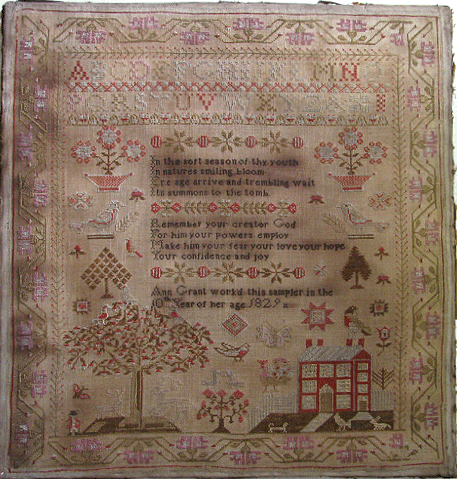 In the soft season of thy youth
In natures smiling bloom
Ere age arrive and trembling wait
Its summons to the tomb
Remember your creator God
For him your powers employ
Make him your fear your love your hope
Your confidence and joy
Ann Grant work'd this sampler in the
10th Year of her age 1829